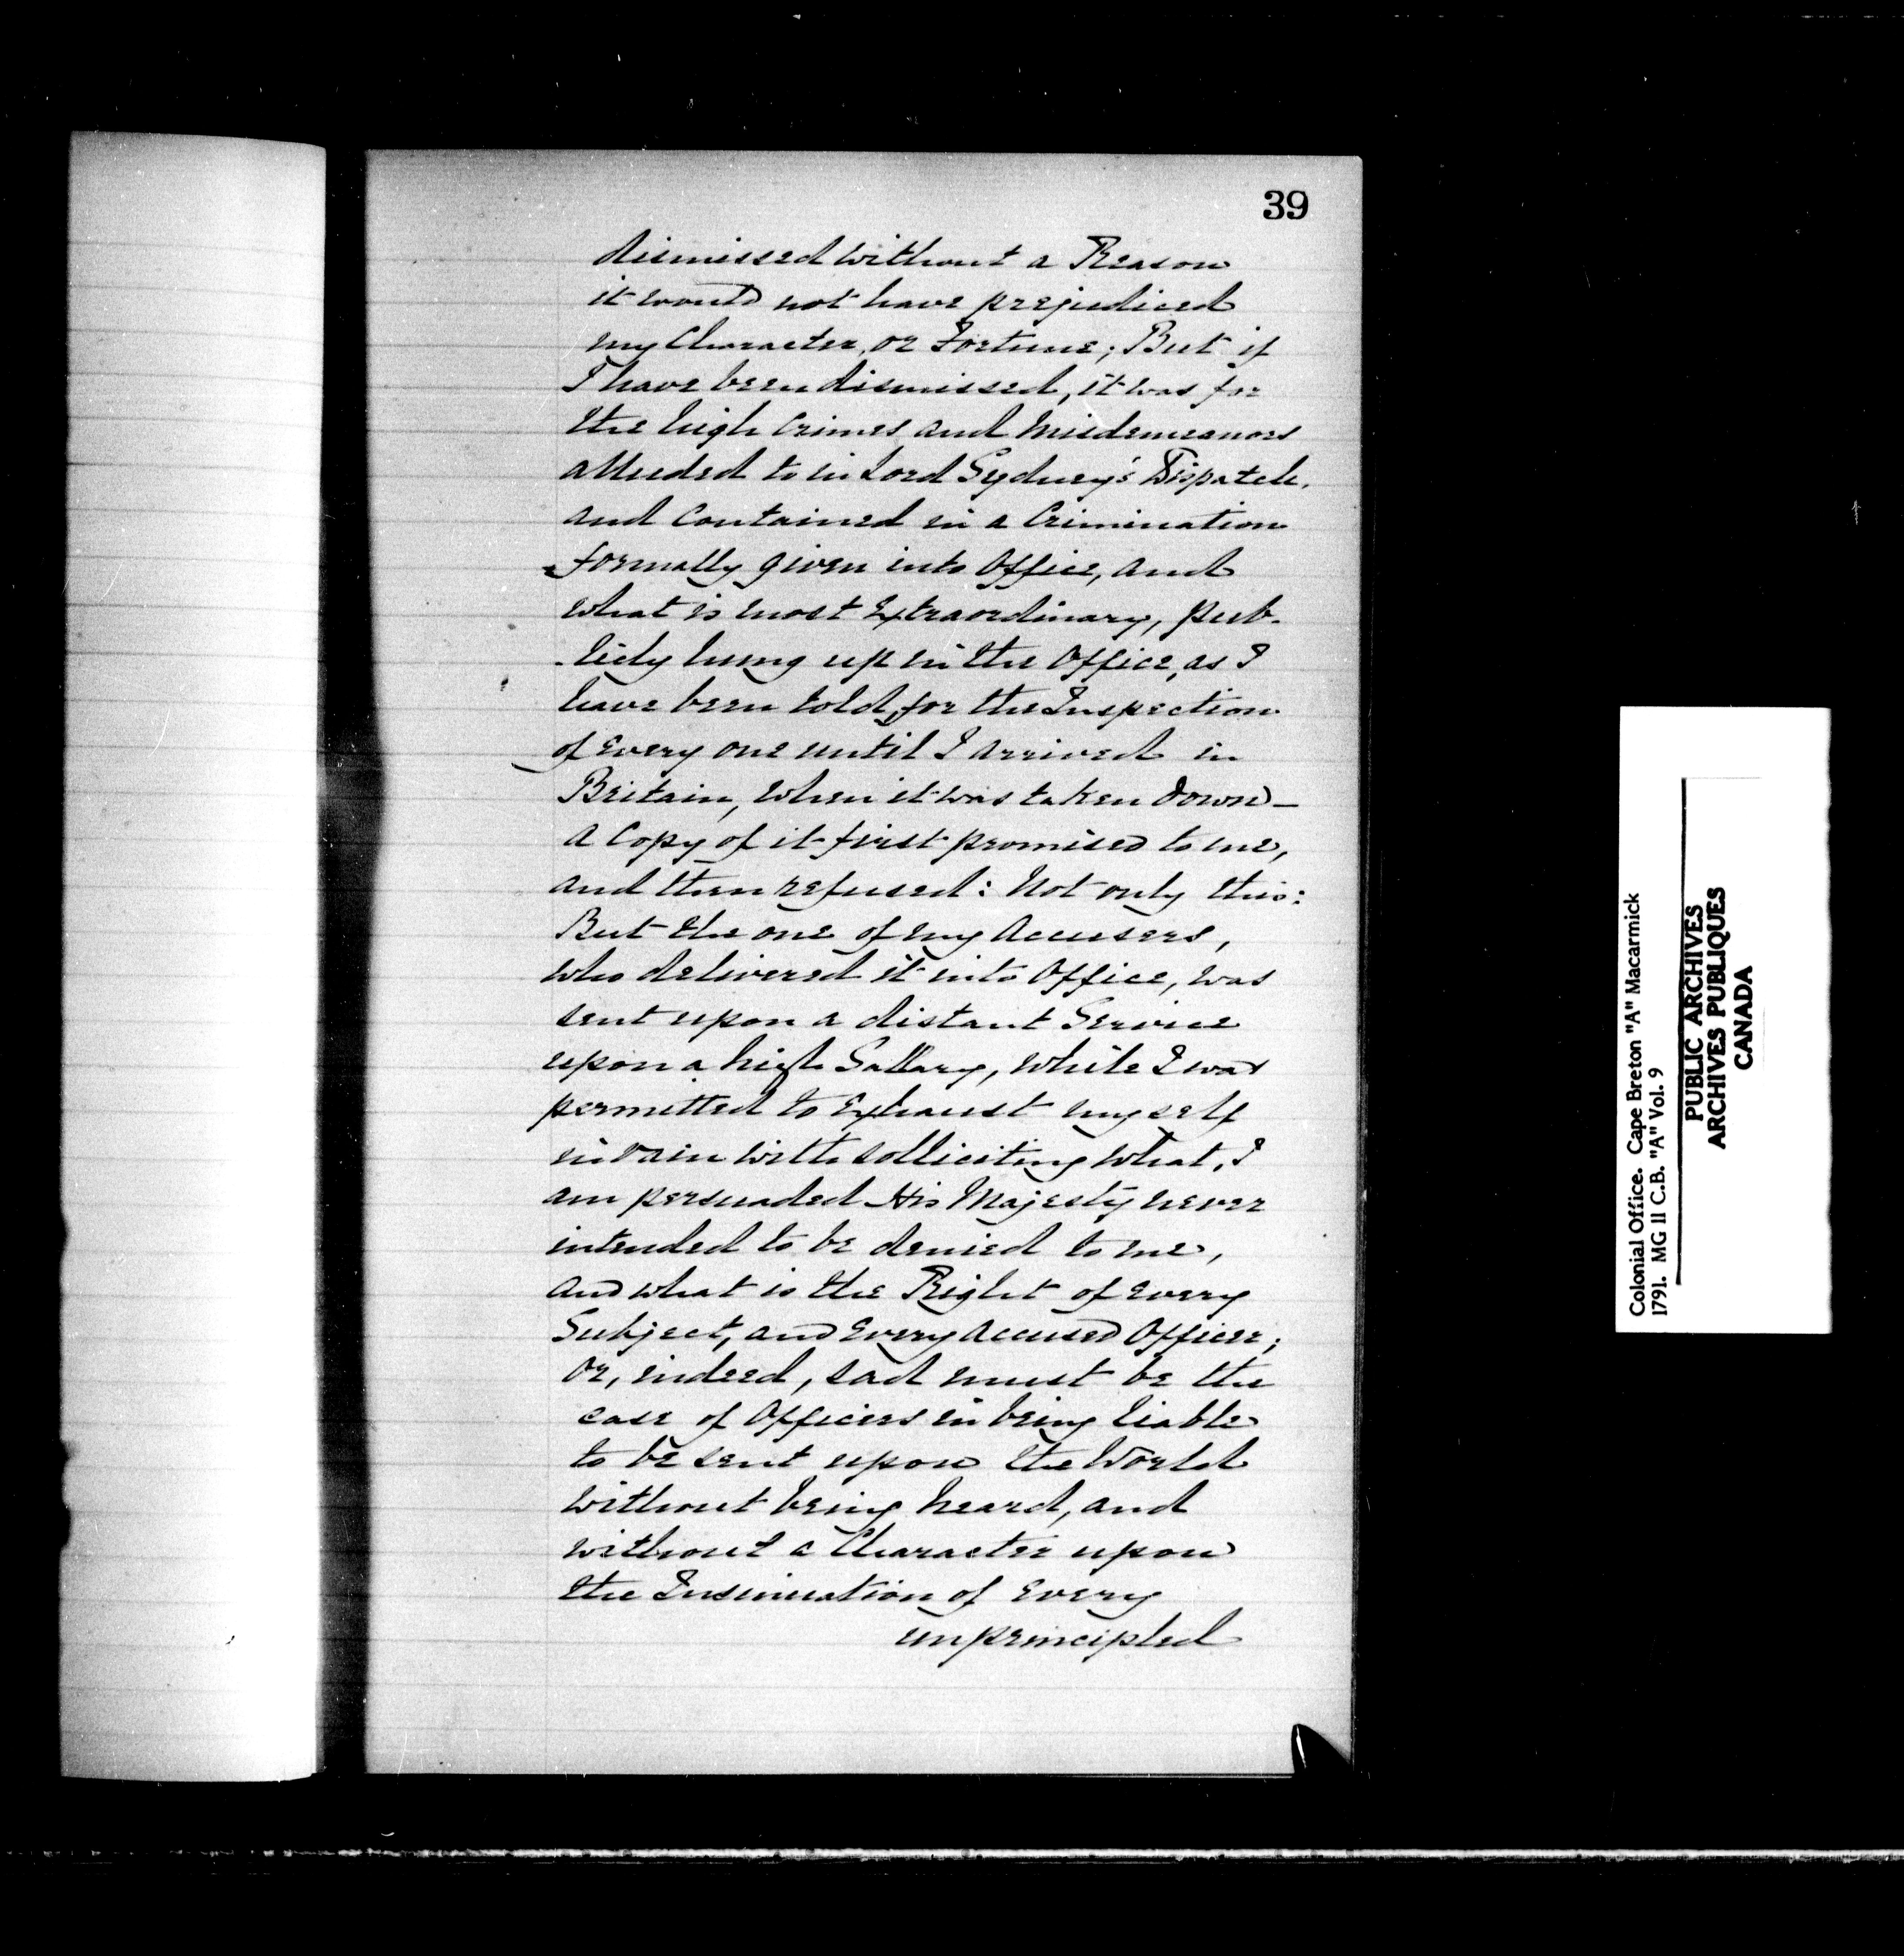 39
dismissed without a Reason
it would not have prejudiced
my Character, or Fortune; But if
I have been dismissed, it was for
the high Crimes and Misdemeanors
alluded to in Lord Sydney's Dispatch.
and Contained in a Crimination
formally given into Office, and
what is most Extraordinary, pub-
-licly hung up in the Office, as I
have been told, for the Inspection
of Every one until I arrived in
Britain, when it was taken down—
a Copy of it first promised to me,
and then refused: Not only this:
But the one of my Accusers,
who delivered it into Office, was
sent upon a distant Service
upon a high Sallary, while I was
permitted to Exhaust myself
in vain with solliciting what, I
am persuaded His Majesty never
intended to be denied to me,
and what is the Right of every
Subject, and Every Accused Officer;
or, indeed, sad must be the
case of Officers in being liable
to be sent upon the World
without being heard, and
without a Character upon
the Insinuation of Every
unprincipled
Colonial Office. Cape Breton "A" Macarmick
1791. MG 11 C.B. "A" Vol. 9
PUBLIC ARCHIVES
ARCHIVES PUBLIQUES
CANADA